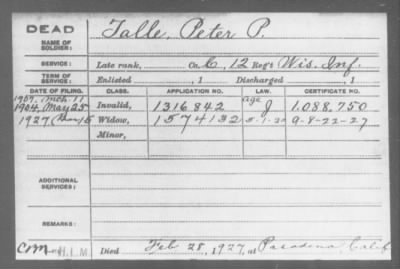 DEAD
NAME OF SOLDIER: Talle, Peter P.
SERVICE: Late rank, Co. C, 12 Reg't Wis. Inf.
TERM OF SERVICE: Enlisted , 1 Discharged , 1
DATE OF FILING. CLASS. APPLICATION NO. LAW. CERTIFICATE NO.
1907. Mch. 11 Age
1904, May 25 Invalid, 1316842 J 1,088,750
1927 15 Widow, 1574132 5-1-20 9-8-22-27
Minor,
ADDITIONAL SERVICES:
REMARKS:
H.L.M
Died Feb 28, 1927, at Pasadena, Calif